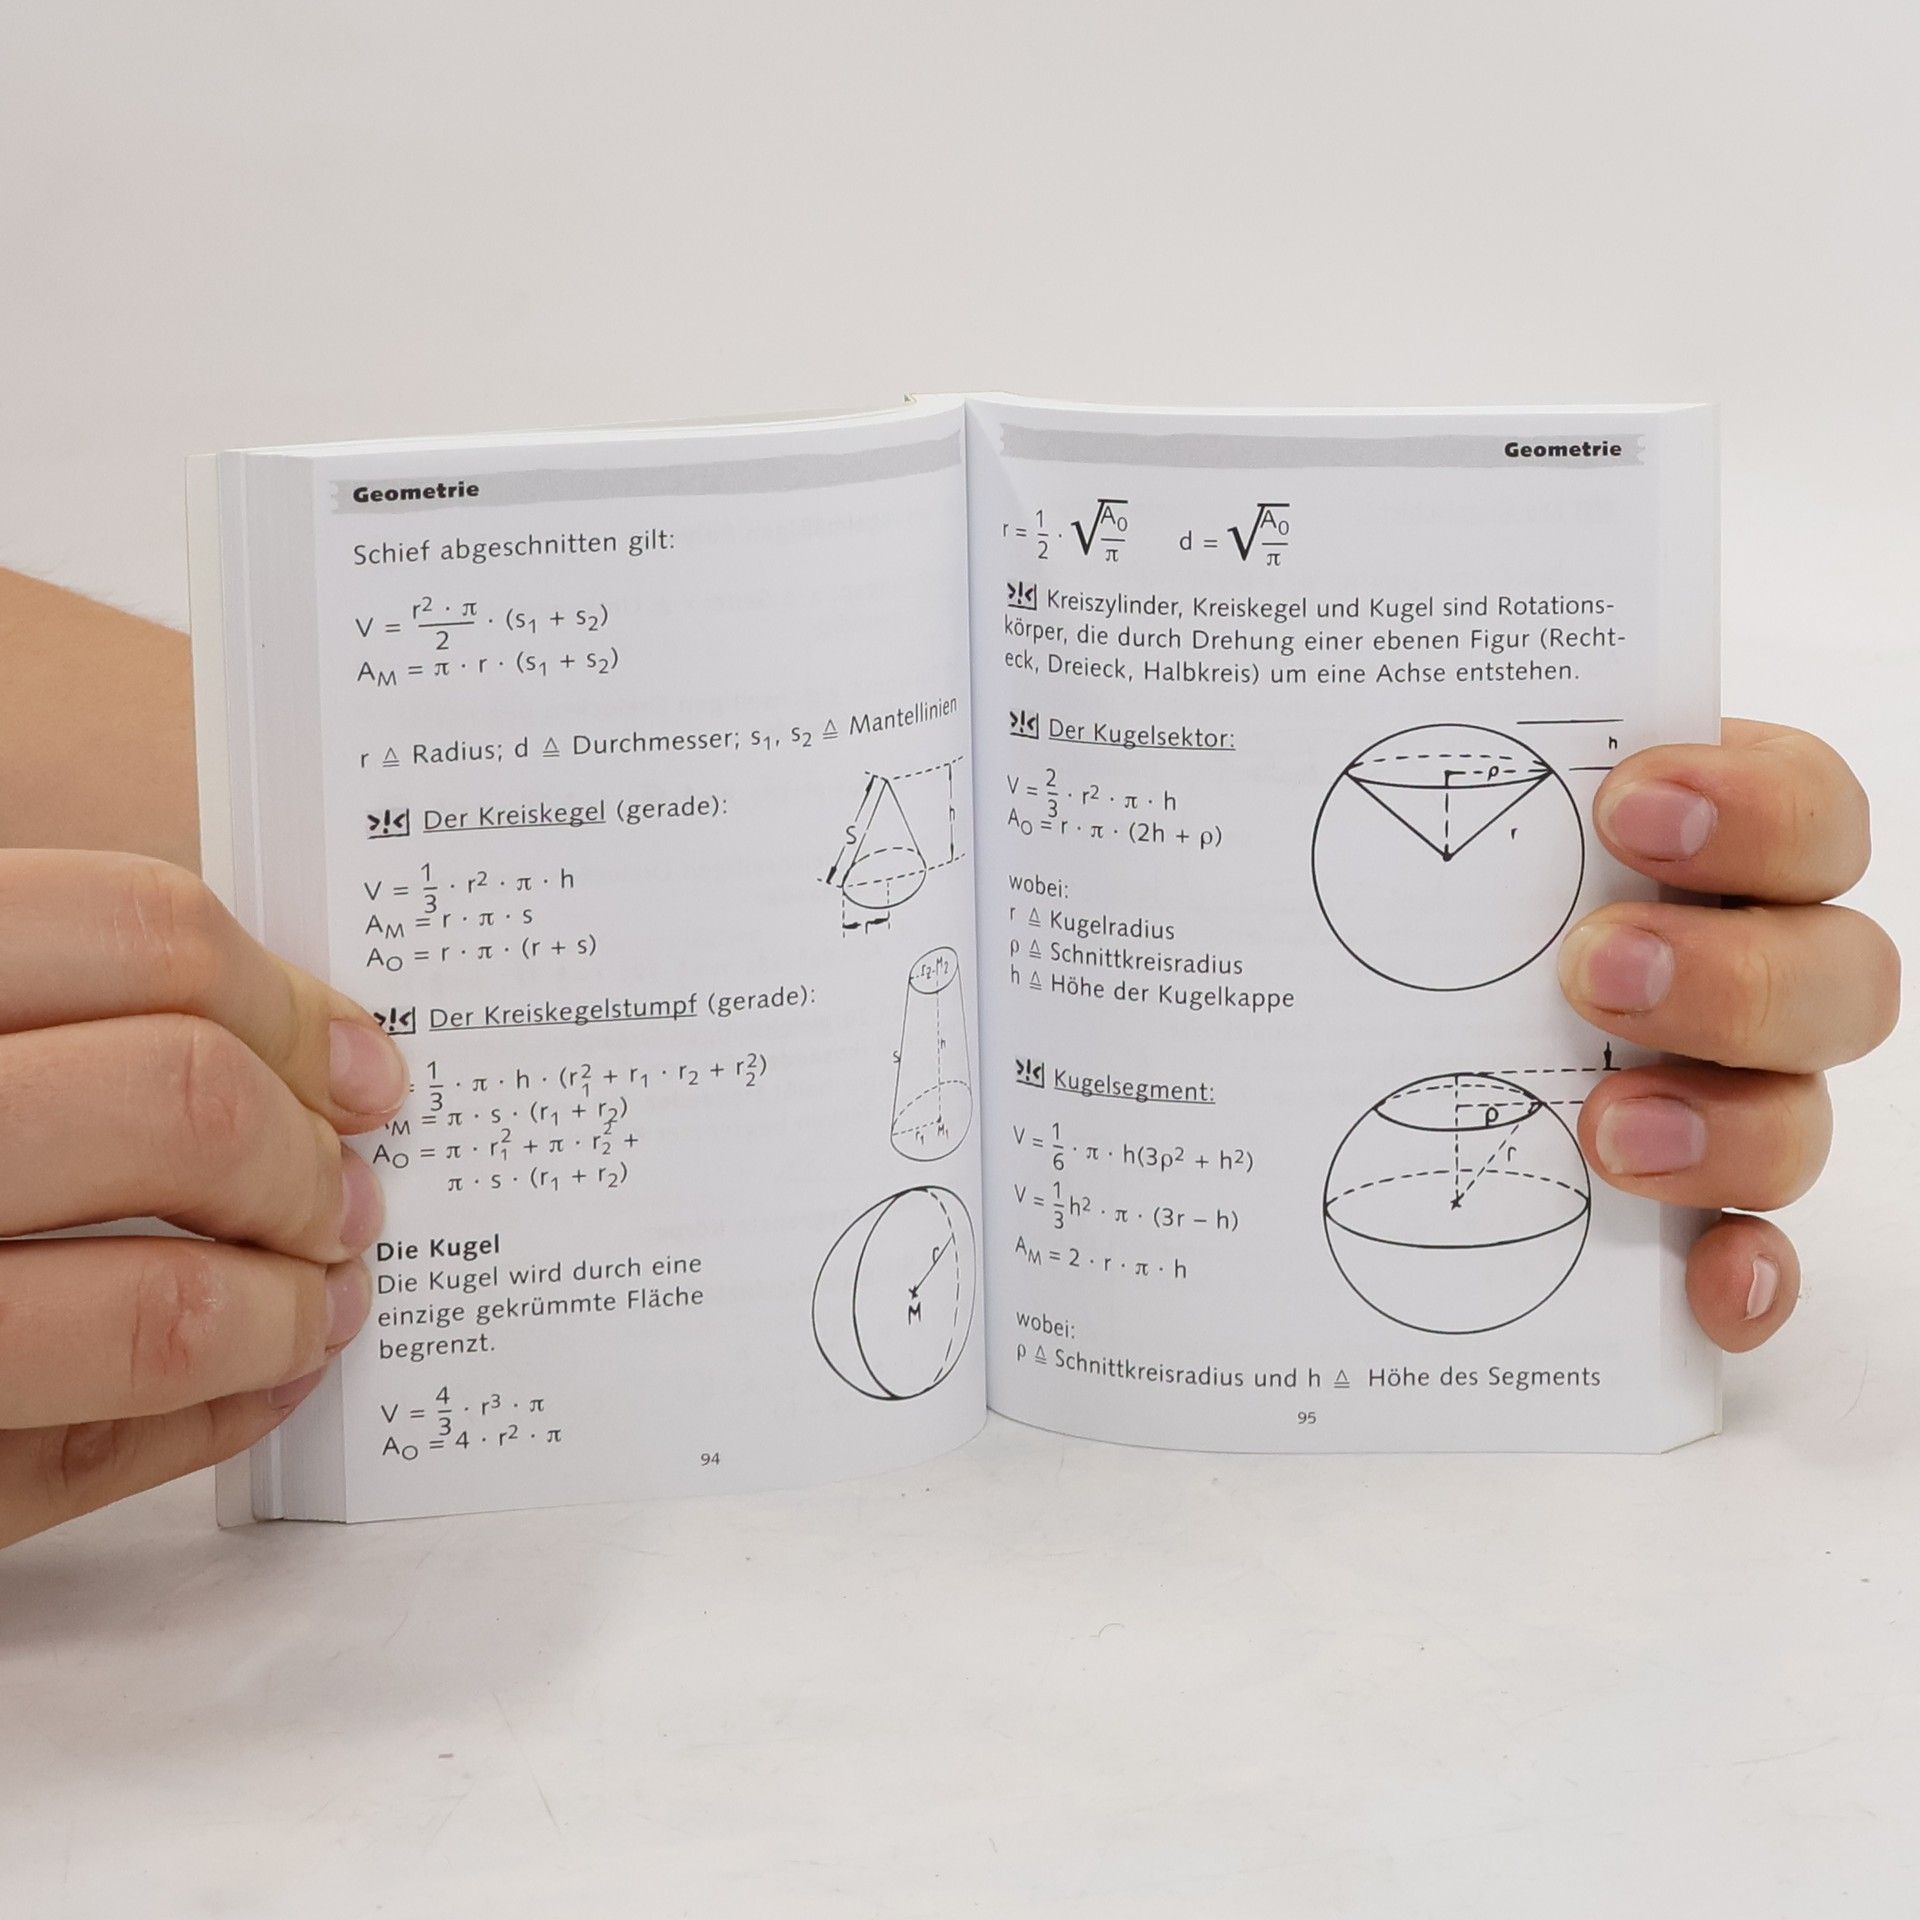 Geometrie
Schief abgeschnitten gilt:
V = r² · π / 2 · (s₁ + s₂)
A_M = π · r · (s₁ + s₂)
r ≙ Radius; d ≙ Durchmesser; s₁, s₂ ≙ Mantellinien
>!< Der Kreiskegel (gerade):
V = 1/3 · r² · π · h
A_M = r · π · s
A_O = r · π · (r + s)
S
h
r
>!< Der Kreiskegelstumpf (gerade):
= 1/3 · π · h · (r₁² + r₁ · r₂ + r₂²)
M = π · s · (r₁ + r₂)
A_O = π · r₁² + π · r₂² +
π · s · (r₁ + r₂)
r₂ M₂
s
h
r₁ M₁
Die Kugel
Die Kugel wird durch eine
einzige gekrümmte Fläche
begrenzt.
V = 4/3 · r³ · π
A_O = 4 · r² · π
r
M
94
Geometrie
r = 1/2 · √(A_O/π) d = √(A_O/π)
>!< Kreiszylinder, Kreiskegel und Kugel sind Rotations-
körper, die durch Drehung einer ebenen Figur (Recht-
eck, Dreieck, Halbkreis) um eine Achse entstehen.
>!< Der Kugelsektor:
V = 2/3 · r² · π · h
A_O = r · π · (2h + ρ)
wobei:
r ≙ Kugelradius
ρ ≙ Schnittkreisradius
h ≙ Höhe der Kugelkappe
h
ρ
r
>!< Kugelsegment:
V = 1/6 · π · h(3ρ² + h²)
V = 1/3 h² · π · (3r – h)
A_M = 2 · r · π · h
ρ
r
wobei:
ρ ≙ Schnittkreisradius und h ≙ Höhe des Segments
95